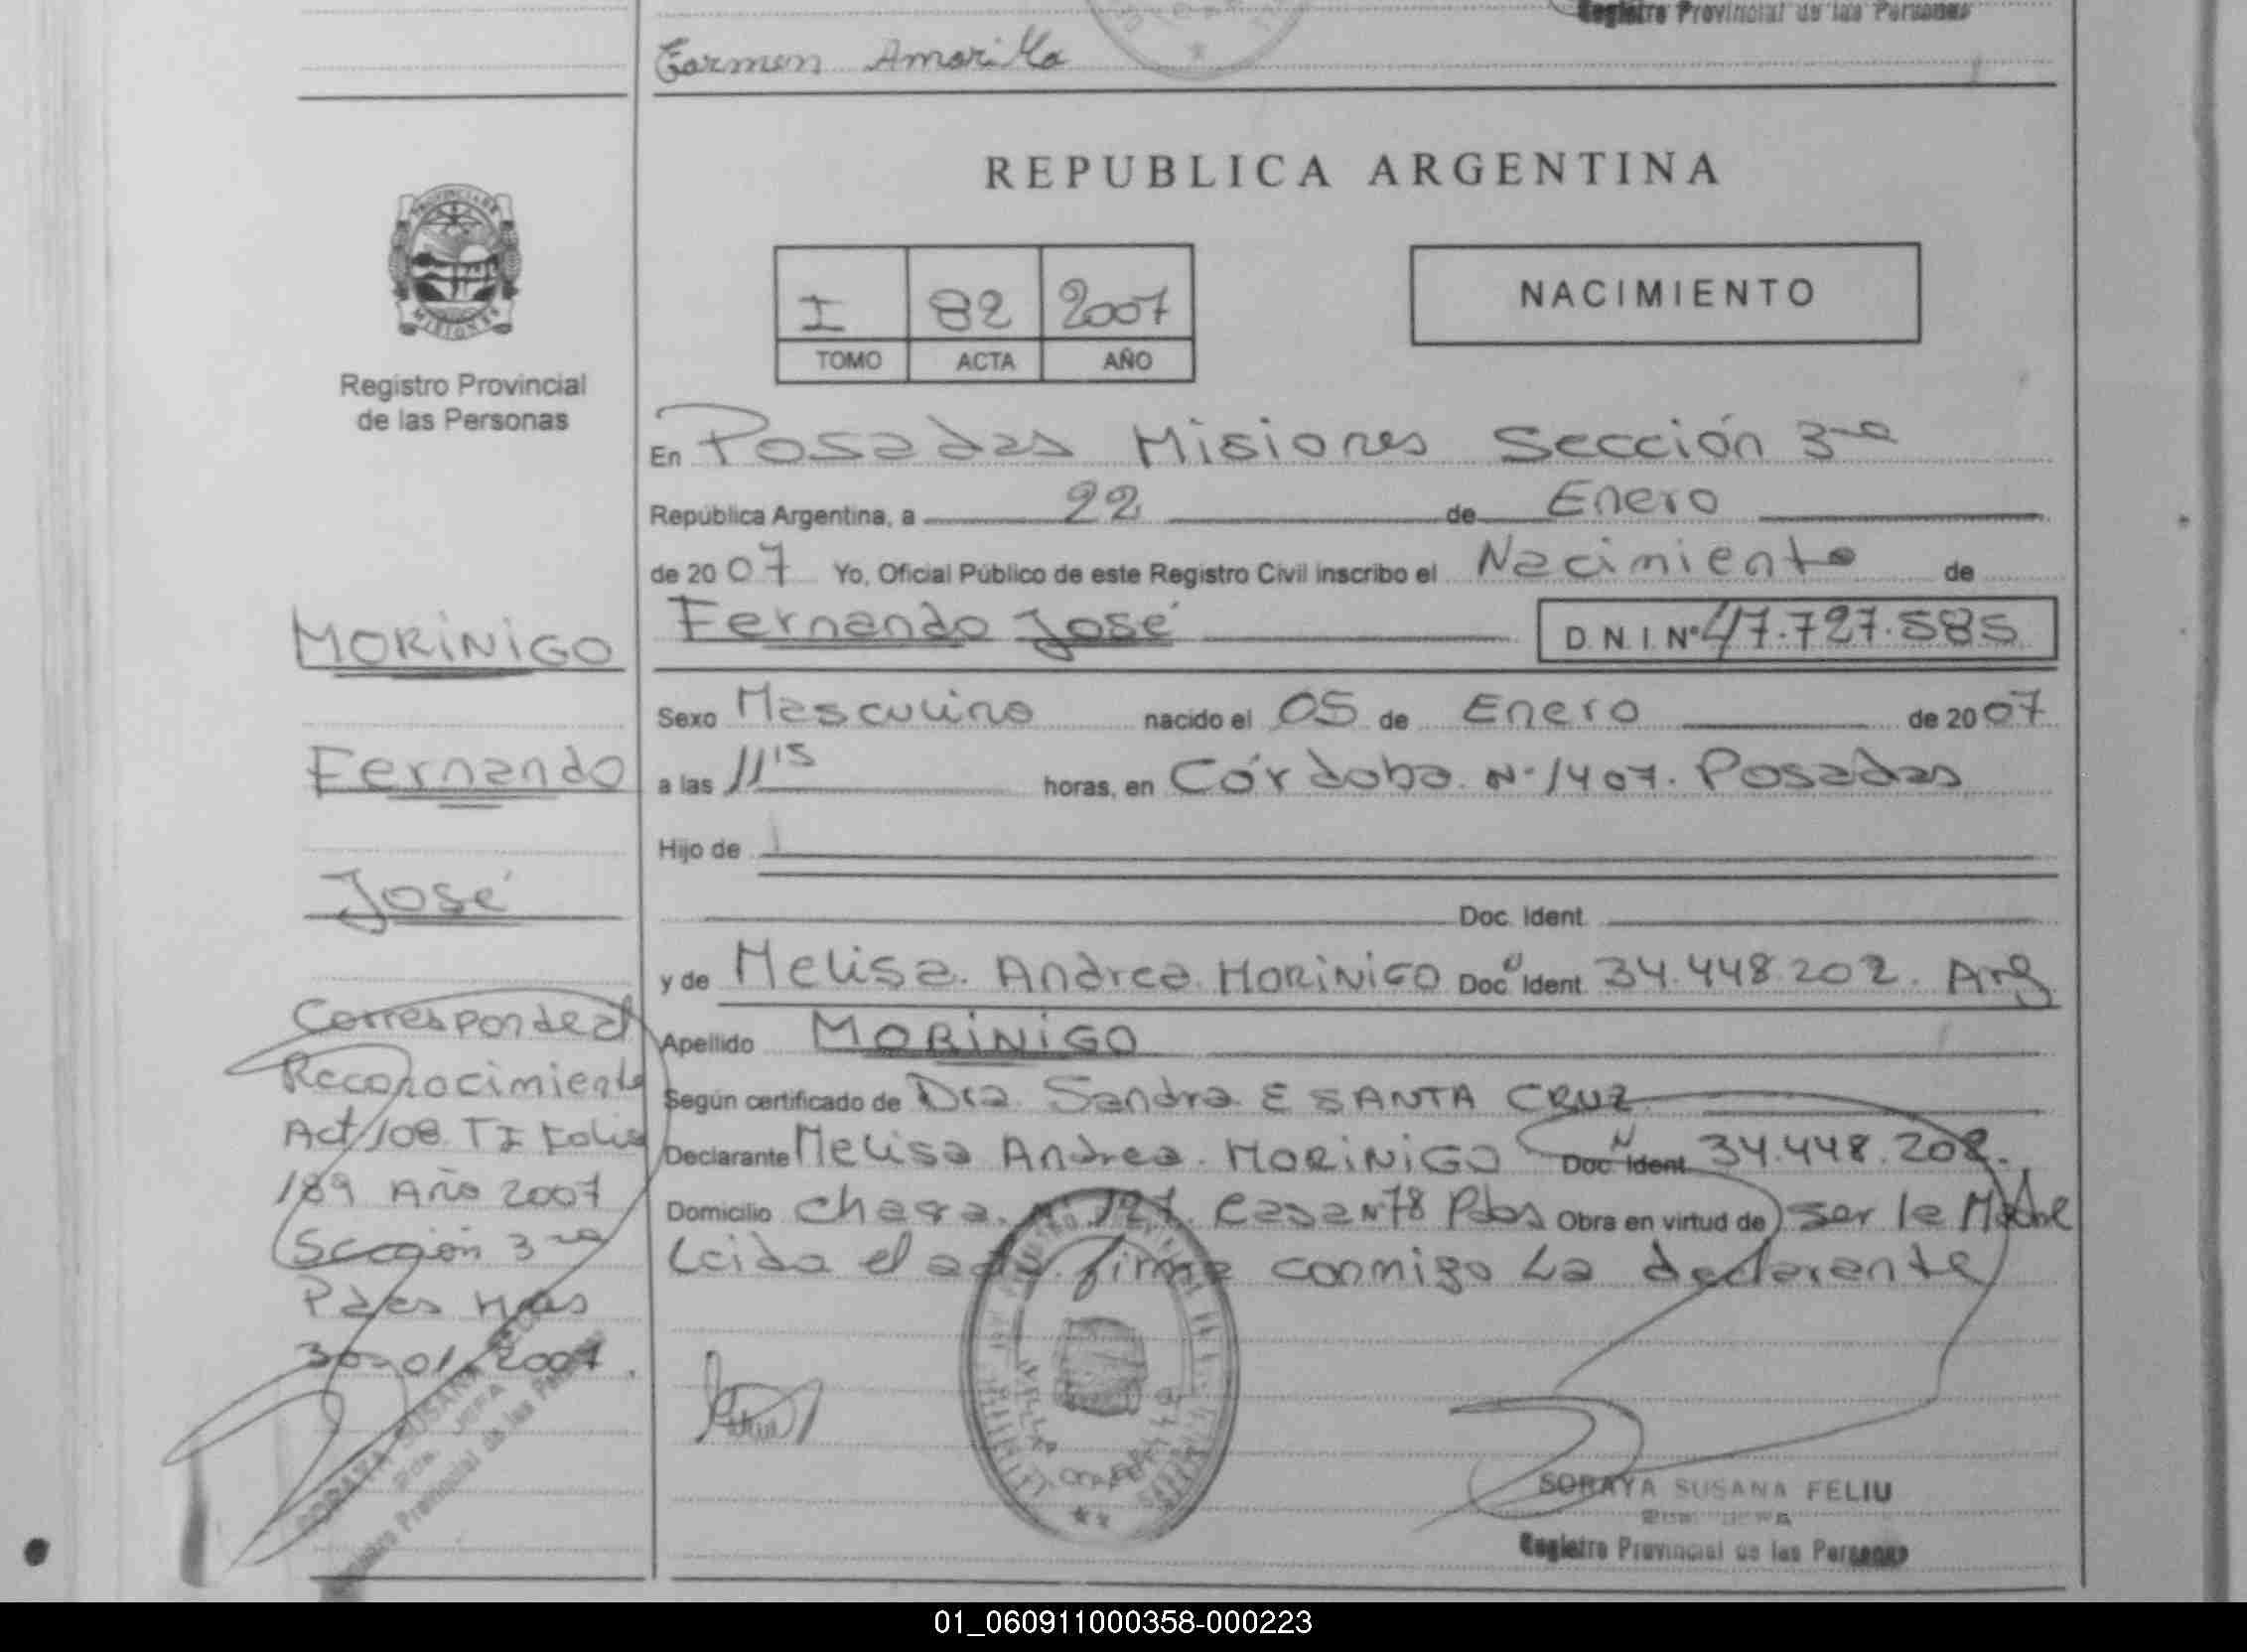 Registro Provincial de las Personas
Carmen Amarilla
REPUBLICA ARGENTINA
PROVINCIA DE
MISIONES
Registro Provincial
de las Personas
I 82 2007
TOMO ACTA AÑO
NACIMIENTO
En Posadas Misiones Sección 3ra
República Argentina, a 22 de Enero
de 2007 Yo, Oficial Público de este Registro Civil inscribo el Nacimiento de
Fernando José D.N.I. Nº 47.727.585
Sexo Masculino nacido el 05 de Enero de 2007
a las 11 15 horas, en Córdoba Nº 1407. Posadas
Hijo de
Doc. Ident.
y de Melisa Andrea MORiNiGO Doc. Ident. 34.448.202. Arg
Apellido MORiNiGO
Según certificado de Dra. Sandra E SANTA CRUZ
Declarante Melisa Andrea MORiNiGO Doc. Ident. 34.448.202.
Domicilio Nº 127. Casa Nº 78 Pdas Obra en virtud de ser la Madre
Leida el acta firma conmigo La declarante
SORAYA SUSANA FELIU
Registro Provincial de las Personas
MORiNiGO
Fernando
José
Corresponde al
Reconocimiento
Act 108 T I Folio
189 Año 2007
Sección 3ra
Pdas Mnes
30-01-2007.
SORAYA SUSANA
JEFA
Provincial de las
01_060911000358-000223